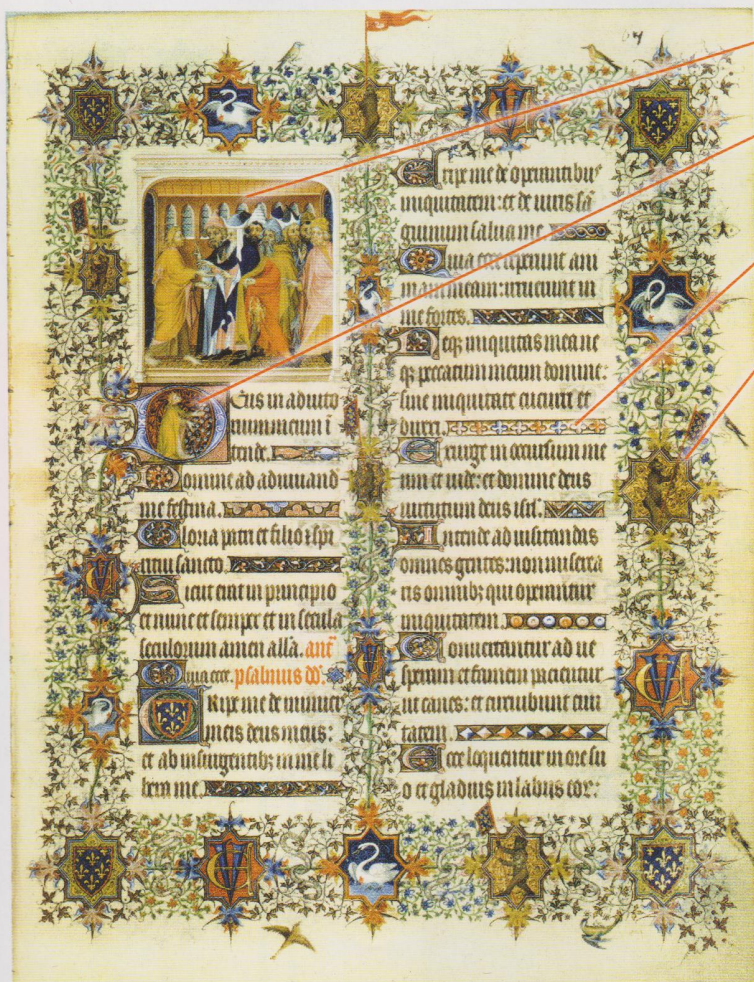 Deus in adiuto
rium meum i
tende.
Domine ad adiuuand
me festina.
Gloria patri et filio et spi
ritui sancto.
Sicut erat in principio
et nunc et semper et in secula
seculorum amen alla. ant
Quia ecce. psalmus dd.
Eripe me de inimicis
meis deus meus:
et ab insurgentibz in me li
bera me.
Eripe me de operantibus
iniquitatem: et de uiris sa
guinum salua me
Quia ecce ceperunt ani
mam meam: irruerunt in
me fortes.
Neqz iniquitas mea ne
qz peccatum meum domine:
sine iniquitate cucurri et
direxi.
Exurge in occursum me
um et uide: et domine deus
uirtutum deus isrl.
Intende ad uisitandas
omnes gentes: non miserea
ris omnibz qui operantur
iniquitatem.
Conuertantur ad ue
speram et famem pacientur
ut canes: et circuibunt ciui
tatem.
Ecce loquentur in ore su
o et gladius in labiis eor: